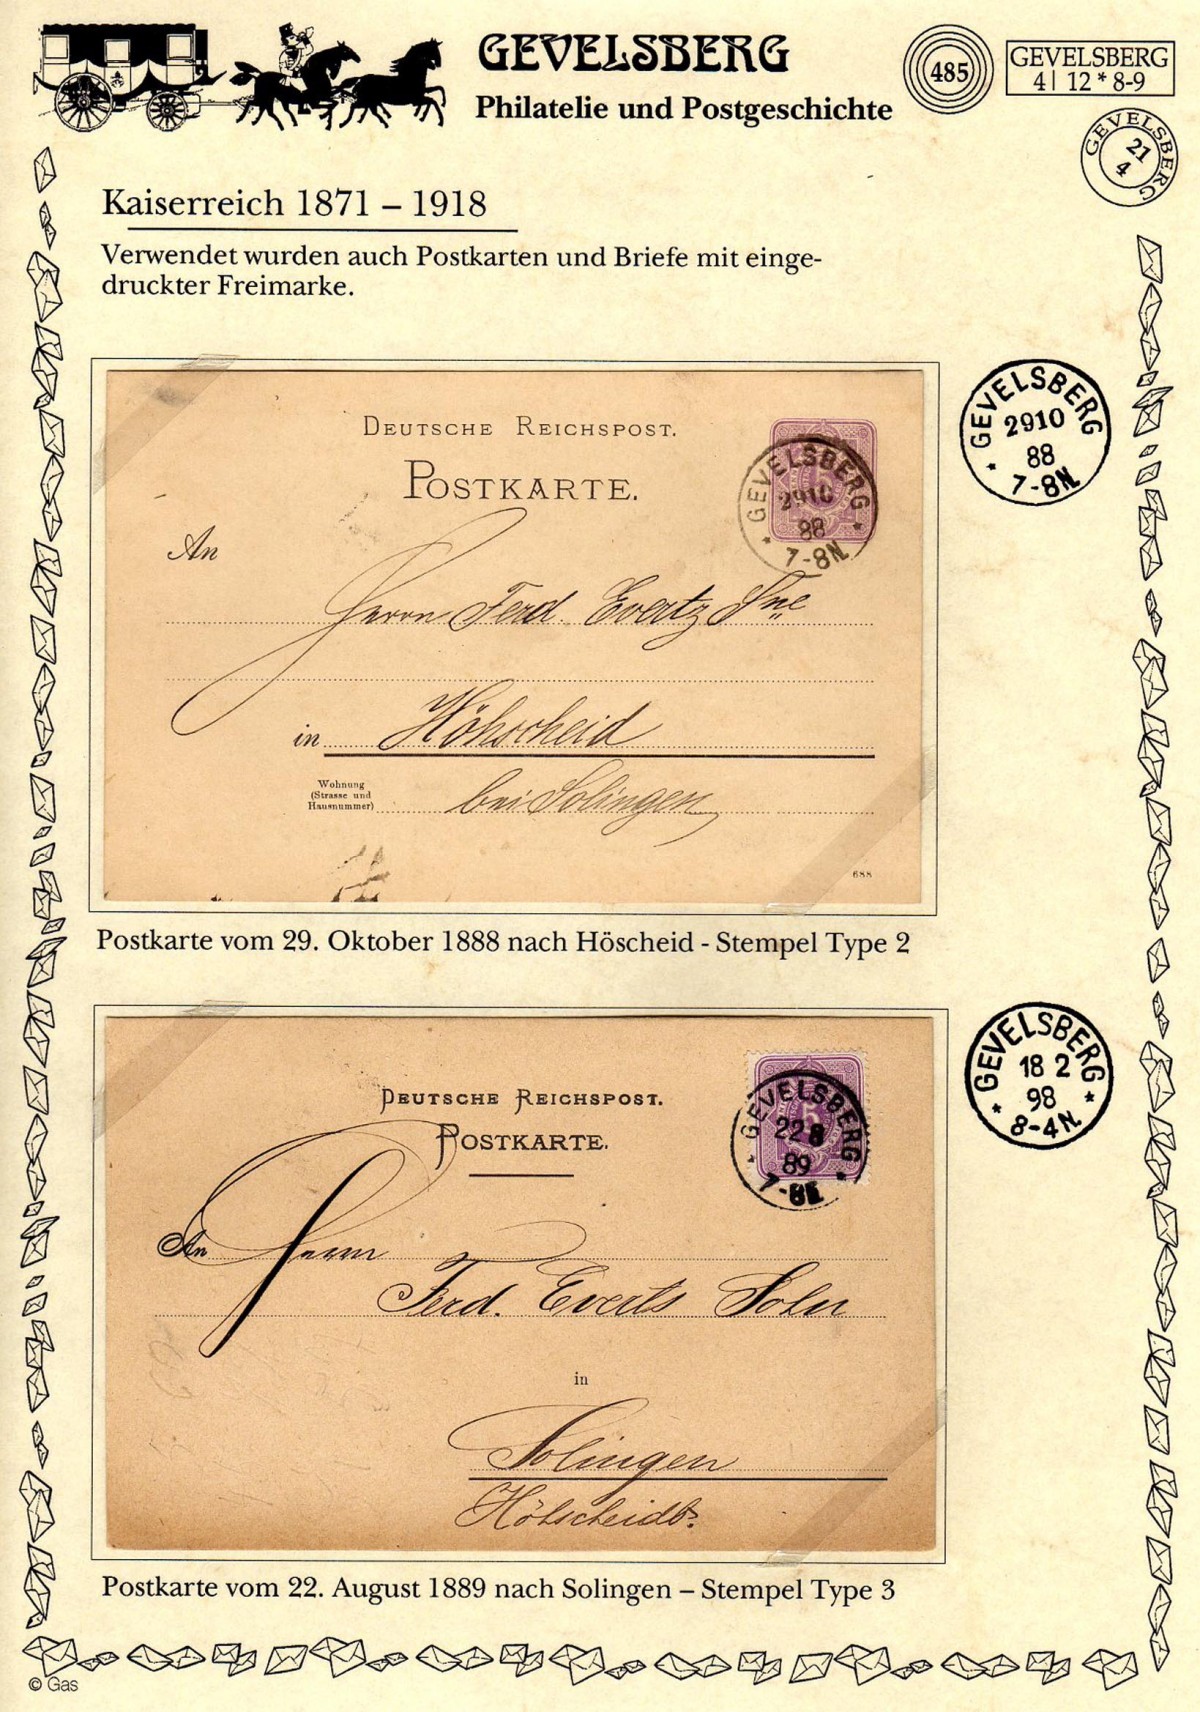 GEVELSBERG
Philatelie und Postgeschichte
485
GEVELSBERG
4| 12 * 8-9
GEVELSBERG
21
4
Kaiserreich 1871 – 1918
Verwendet wurden auch Postkarten und Briefe mit einge-
druckter Freimarke.
DEUTSCHE REICHSPOST.
POSTKARTE.
GEVELSBERG
2910
88
7-8N
An
Herrn Ferd. Evertz Sne
in Höhscheid
Wohnung
(Strasse und
Hausnummer)
bei Solingen
688
GEVELSBERG
2910
88
* 7-8N.
Postkarte vom 29. Oktober 1888 nach Höscheid - Stempel Type 2
DEUTSCHE REICHSPOST.
POSTKARTE.
5
GEVELSBERG
22 8
89
* 7-8E *
An Herrn
Ferd. Everts Sohn
in
Solingen
GEVELSBERG
18 2
98
* 8-4N. *
Postkarte vom 22. August 1889 nach Solingen – Stempel Type 3
© Gas